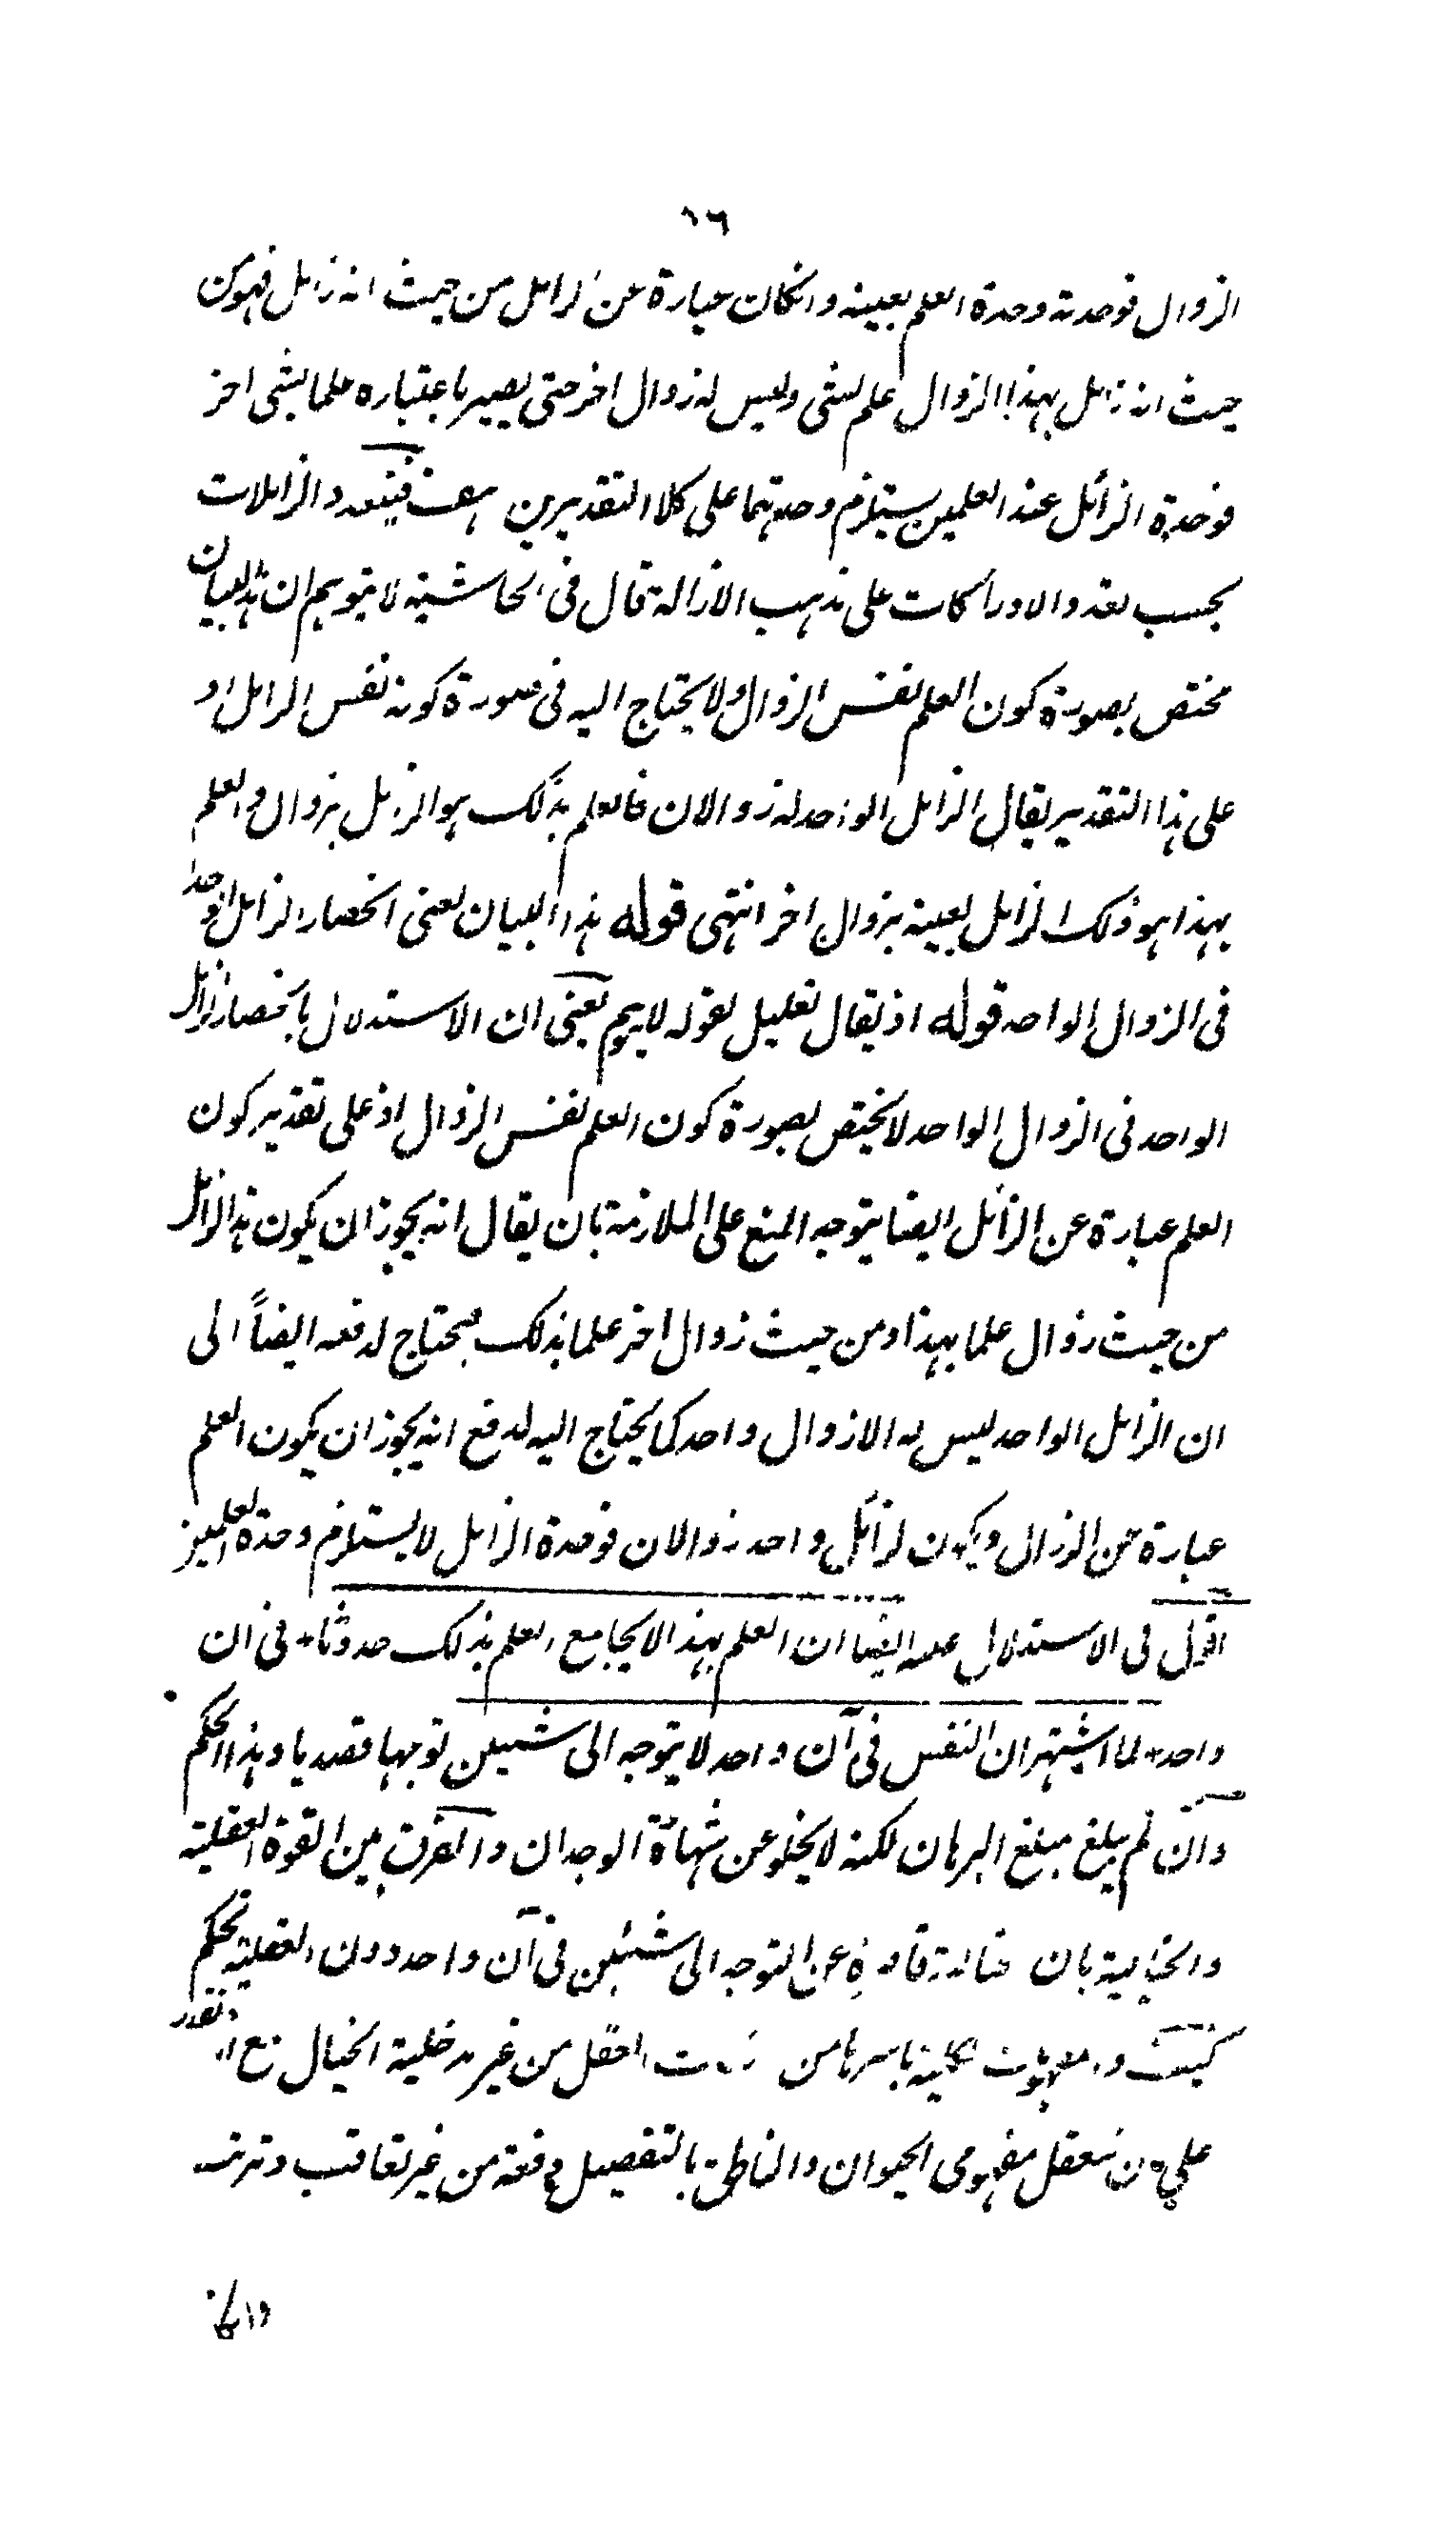 ١٦
الزوال فوحدته وحدة العلم بعينه وانكان عبارة عن الزائل من حيث انه زائل فهو من
حيث انه زائل بهذا الزوال علم لشئ وليس له زوال اخر حتى يصير باعتباره علما لشئ اخر
فوحدة الزائل عند العلمين يستلزم وحدتهما على كلا التقديرين هف فيتعدد الزائلات
بحسب تعدد الادراكات على مذهب الازالة قال فى الحاشية لا يتوهم ان هذا البيان
مختص بصورة كون العلم نفس الزوال ولا يحتاج اليه فى صورة كونه نفس الزائل اذ
على هذا التقدير يقال الزائل الواحد له زوالان فالعلم بذلك هو الزائل بزوال والعلم
بهذا هو ذلك الزائل بعينه بزوال اخر انتهى قوله هذا البيان يعنى انحصار الزائل الواحد
فى الزوال الواحد قوله اذ يقال تعليل لقوله لا يتوهم يعنى ان الاستدلال بانحصار الزائل
الواحد فى الزوال الواحد لا يختص بصورة كون العلم نفس الزوال اذ على تقدير كون
العلم عبارة عن الزائل ايضا يتوجه المنع على الملازمة بان يقال انه يجوز ان يكون هذا الزائل
من حيث زوال علما بهذا ومن حيث زوال اخر علما بذلك فيحتاج لدفعه ايضاً الى
ان الزائل الواحد ليس له الا زوال واحد كما يحتاج اليه لدفع انه يجوز ان يكون العلم
عبارة عن الزوال ويكون لزائل واحد زوالان فوحدة الزائل لا يستلزم وحدة العلمين
اقول فى الاستدلال عليه ايضا ان العلم بهذا لا يجامع العلم بذلك حدوثا فى ان
واحد لما اشتهر ان النفس فى آن واحد لا يتوجه الى شيئين توجها قصديا وهذا الحكم
وان لم يبلغ مبلغ البرهان لكنه لا يخلو عن شهادة الوجدان والفرق بين القوة العقلية
والخيالية بان عن التوجه الى شيئين فى آن واحد دون العقلية تحكم
كيف باسرها من العقل من غير مدخلية الخيال
نعقل مفهومى الحيوان والناطق بالتفصيل دفعة من غير تعاقب وترتب